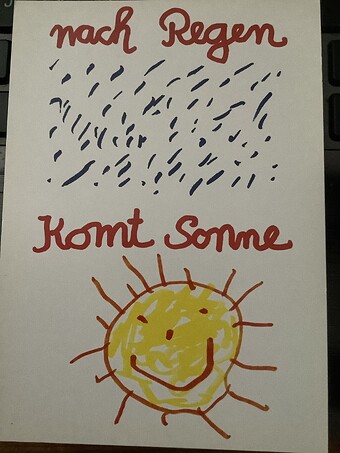 nach Regen
Komt Sonne